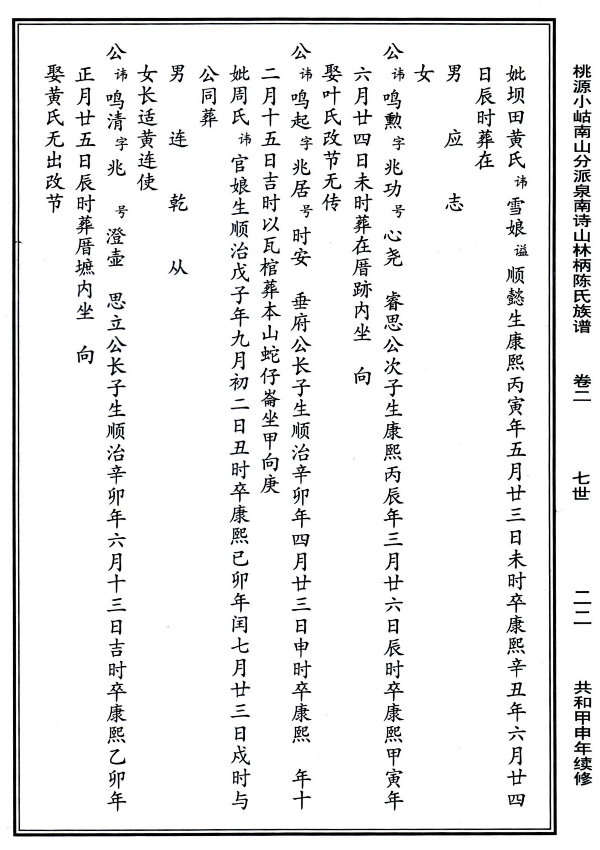 桃源小岵南山分派泉南诗山林柄陈氏族谱 卷二 七世 二二 共和甲申年续修
妣坝田黄氏讳雪娘谥顺懿生康熙丙寅年五月廿三日未时卒康熙辛丑年六月廿四
日辰时葬在
男 应 志
女
公讳鸣勲字兆功号心尧 睿思公次子生康熙丙辰年三月廿六日辰时卒康熙甲寅年
六月廿四日未时葬在厝跡内坐 向
娶叶氏改节无传
公讳鸣起字兆居号时安 垂府公长子生顺治辛卯年四月廿三日申时卒康熙 年十
二月十五日吉时以瓦棺葬本山蛇仔崙坐甲向庚
妣周氏讳官娘生顺治戊子年九月初二日丑时卒康熙己卯年闰七月廿三日戍时与
公同葬
男 连 乾 从
女长适黄连使
公讳鸣清字兆 号澄壶 思立公长子生顺治辛卯年六月十三日吉时卒康熙乙卯年
正月廿五日辰时葬厝墟内坐 向
娶黄氏无出改节